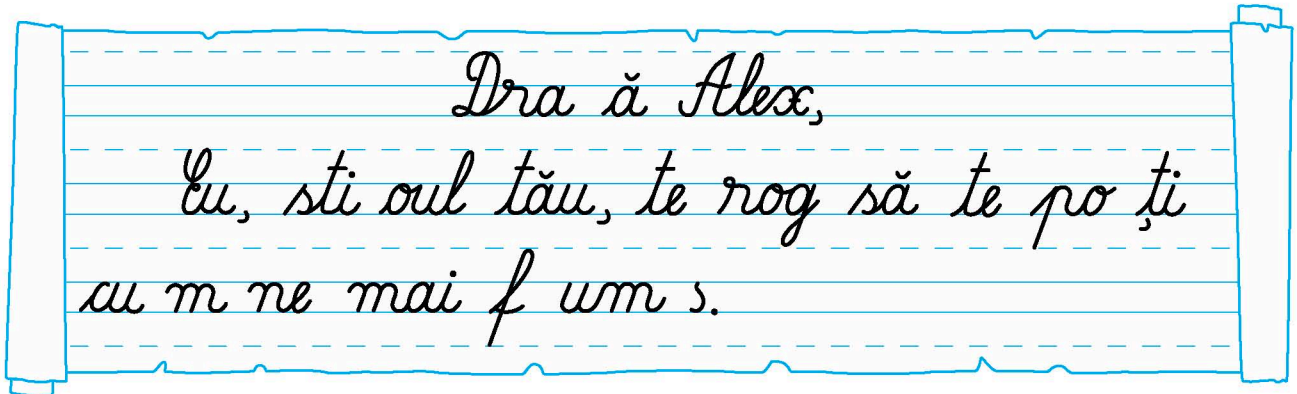 Dra ă Alex,
Eu, sti oul tău, te rog să te po ți
cu m ne mai f um s.